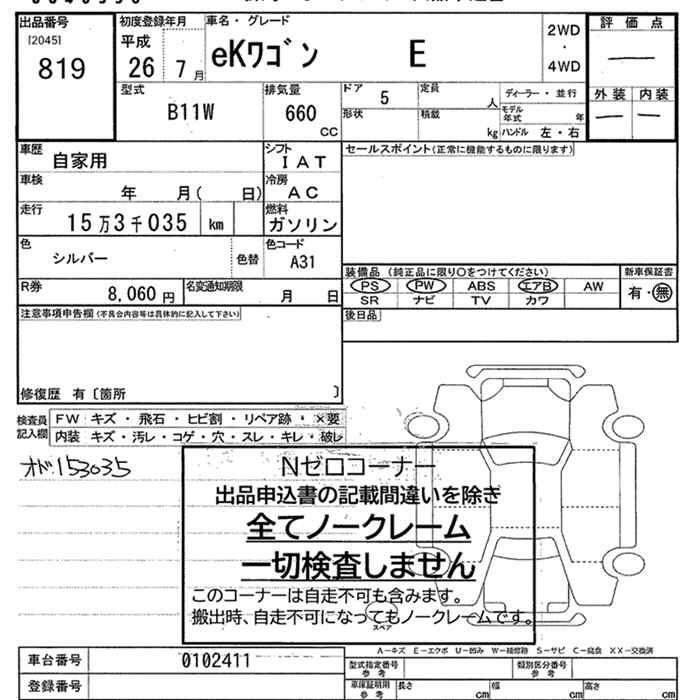 出品番号
[2045]
819
初度登録年月
平成
26年 7月
車名・グレード
eKワゴン E
2WD
・
4WD
評価点
―
外装 内装
― ―
型式
B11W
排気量
660
CC
ドア
5
定員
人
ディーラー・並行
形状
積載
kg
モデル年式
年
ハンドル 左・右
車歴
自家用
シフト
IAT
セールスポイント(正常に機能するものに限ります)
車検
年 月( 日)
冷房
AC
走行
15万3千035 km
燃料
ガソリン
色
シルバー
色替
色コード
A31
装備品 (純正品に限り○をつけてください)
新車保証書
PS PW ABS エアB AW
有・無
SR ナビ TV カワ
R券
8,060 円
名変通知期限
月 日
後日品
注意事項申告欄(不具合内容等は具体的に記入して下さい)
修復歴 有〔箇所 〕
検査員記入欄
FW キズ・飛石・ヒビ割・リペア跡・×要
内装 キズ・汚レ・コゲ・穴・スレ・キレ・破レ
オド:153035
Nゼロコーナー
出品申込書の記載間違いを除き
全てノークレーム
一切検査しません
このコーナーは自走不可も含みます。
搬出時、自走不可になってもノークレームです。
スペア
A―キズ E―エクボ U―凹み W―補修跡 S―サビ C―腐食 XX―交換済
車台番号
0102411
型式指定番号
参考
類別区分番号
参考
登録番号
車庫証明用
参考
長さ
cm
幅
cm
高さ
cm